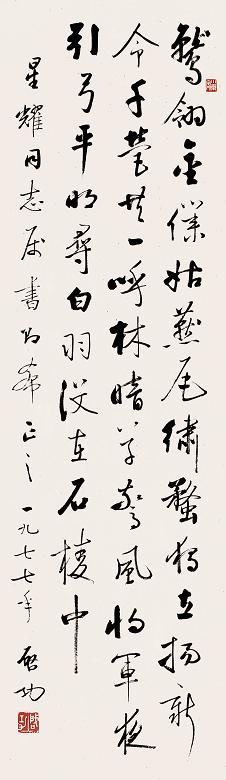 鷲翎金僕姑燕尾繡蝥独立揚新
令千營共一呼林暗草驚風將軍夜
引弓平明尋白羽没在石棱中
星耀同志属書即希正之一九七七年 啓功